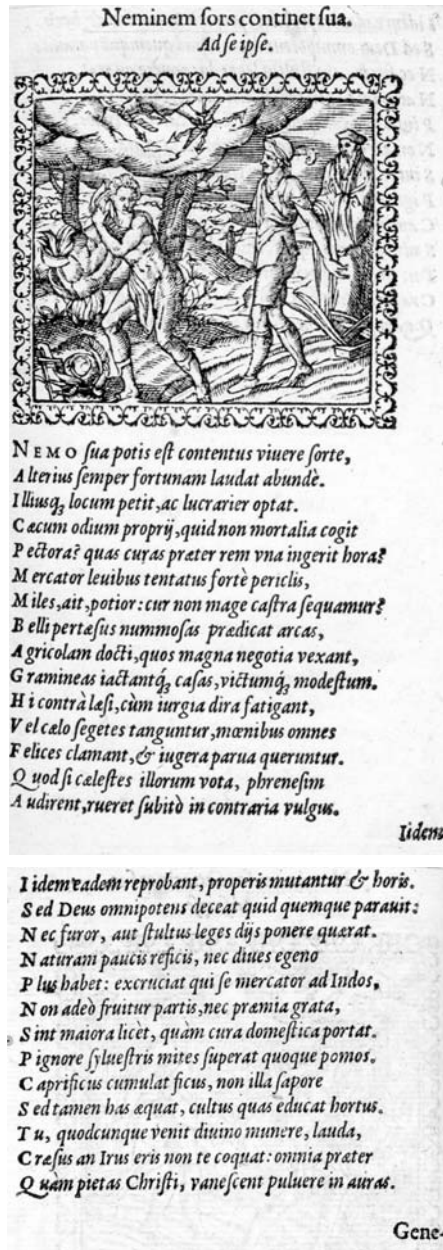 Neminem ſors continet ſua.
Ad ſe ipſe.
NEMO ſua potis eſt contentus viuere ſorte,
Alterius ſemper fortunam laudat abundè.
Illiusqꝫ locum petit, ac lucrarier optat.
Cæcum odium proprij, quid non mortalia cogit
Pectora? quas curas præter rem vna ingerit hora?
Mercator leuibus tentatus fortè periclis,
Miles, ait, potior: cur non mage caſtra ſequamur?
Belli pertæſus nummoſas prædicat arcas,
Agricolam docti, quos magna negotia vexant,
Gramineas iactantq́ꝫ caſas, victumq́ꝫ modeſtum.
Hi contrà læſi, cùm iurgia dira fatigant,
Vel cælo ſegetes tanguntur, mœnibus omnes
Felices clamant, & iugera parua queruntur.
Quod ſi cæleſtes illorum vota, phreneſim
Audirent, rueret ſubitò in contraria vulgus.
Iidem
Iidem eadem reprobant, properis mutantur & horis.
Sed Deus omnipotens deceat quid quemque parauit:
Nec furor, aut ſtultus leges dijs ponere quærat.
Naturam paucis reficis, nec diues egeno
Plus habet: excruciat qui ſe mercator ad Indos,
Non adeò fruitur partis, nec præmia grata,
Sint maiora licèt, quàm cura domeſtica portat.
Pignore ſylueſtris mites ſuperat quoque pomos.
Caprificus cumulat ficus, non illa ſapore
Sed tamen has æquat, cultus quas educat hortus.
Tu, quodcunque venit diuino munere, lauda,
Cræſus an Irus eris non te coquat: omnia præter
Quàm pietas Chriſti, vaneſcent puluere in auras.
Gene-